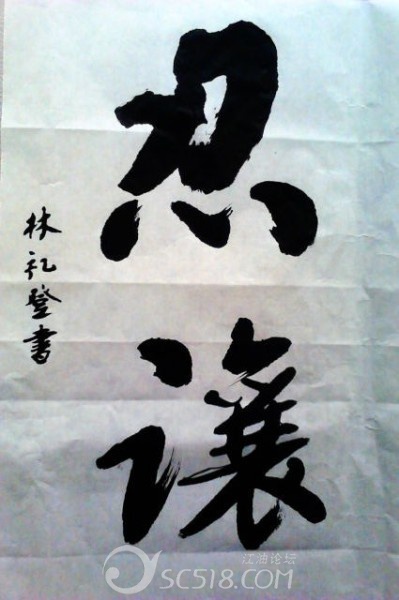 忍讓
林礼登書
江油论坛
SC518.COM